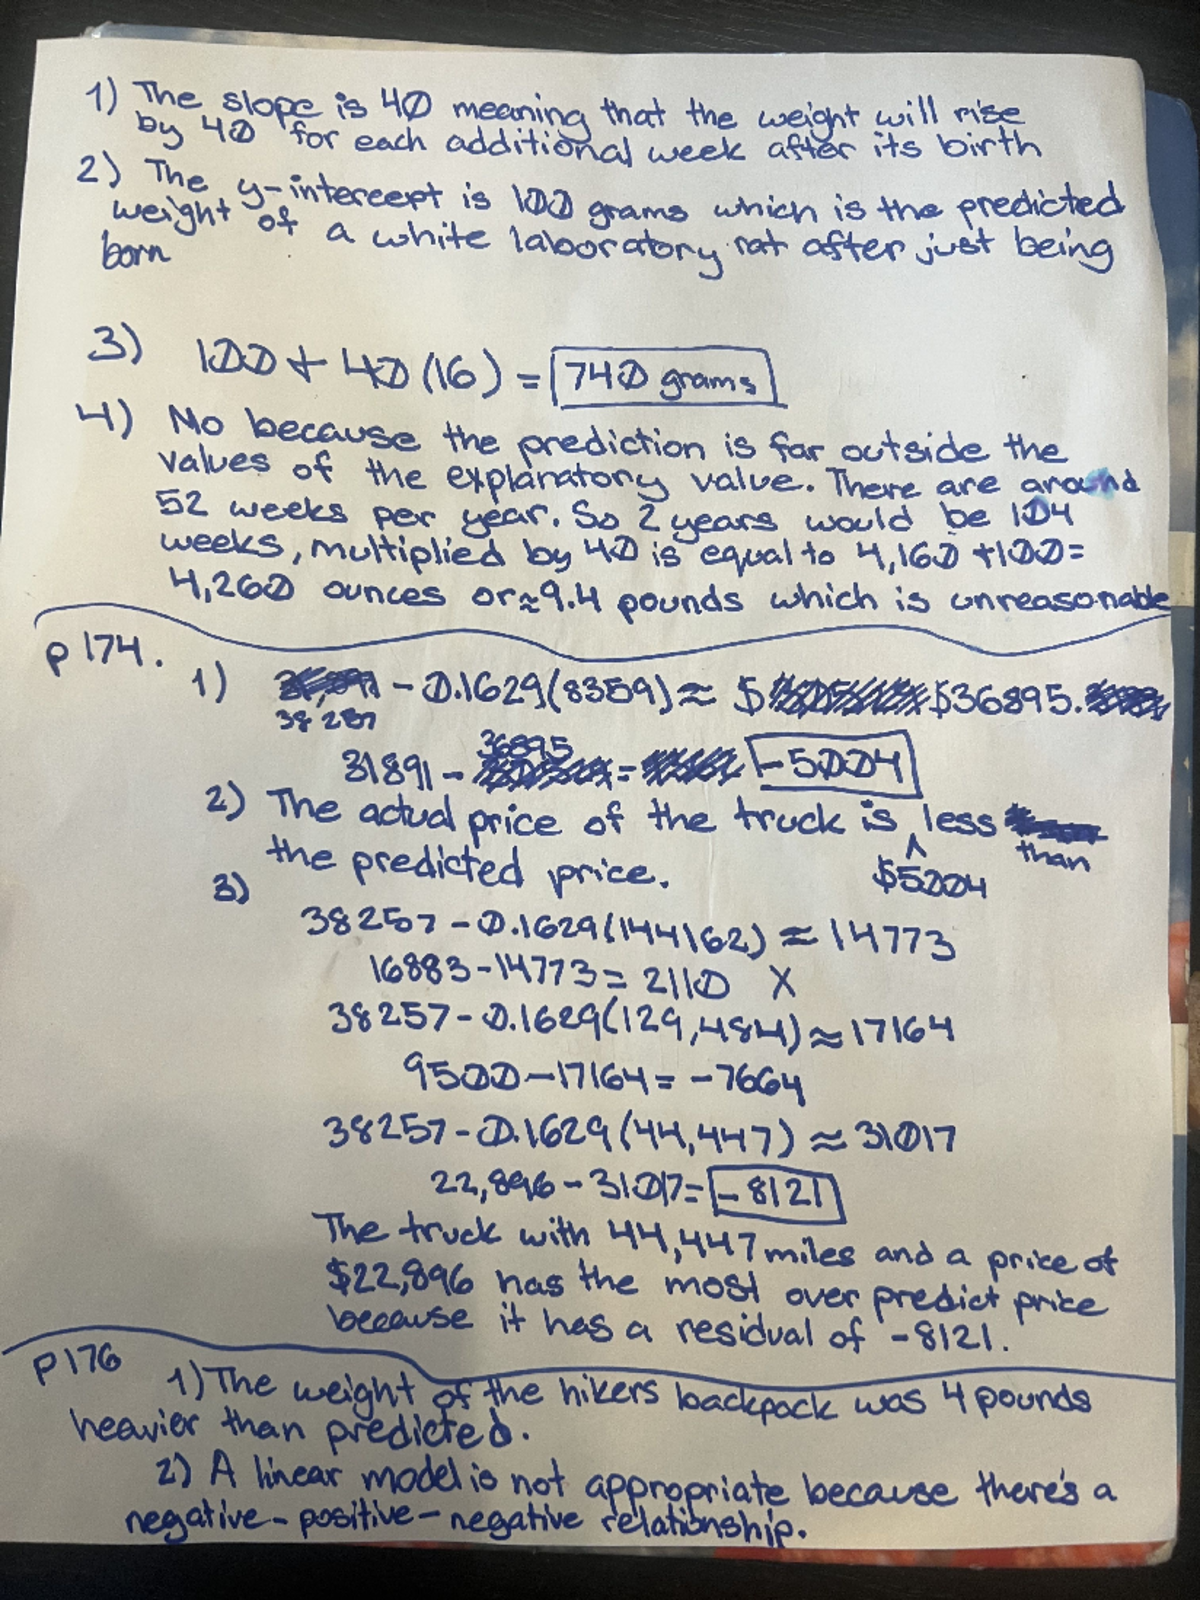 1) The slope is 40 meaning that the weight will rise
by 40 for each additional week after its birth
2) The y-intercept is 100 grams which is the predicted
weight of a white laboratory rat after just being
born
3) 100 + 40 (16) = 740 grams
4) No because the prediction is far outside the
values of the explanatory value. There are around
52 weeks per year. So 2 years would be 104
weeks, multiplied by 40 is equal to 4,160 +100=
4,260 ounces or≈9.4 pounds which is unreasonable
p 174.
1) - 0.1629(8359)≈ $ $36895.
38257
36895
31891 - = -5004
2) The actual price of the truck is ^ less than
$5004
the predicted price.
3)
38257 - 0.1629(144162) ≈ 14773
16883-14773= 2110 X
38257-0.1629(129,484)≈17164
9500-17164= -7664
38257-0.1629(44,447) ≈ 31017
22,896-31017= -8121
The truck with 44,447 miles and a price of
$22,896 has the most over predict price
because it has a residual of -8121.
p176
1) The weight of the hikers backpack was 4 pounds
heavier than predicted.
2) A linear model is not appropriate because there's a
negative-positive-negative relationship.